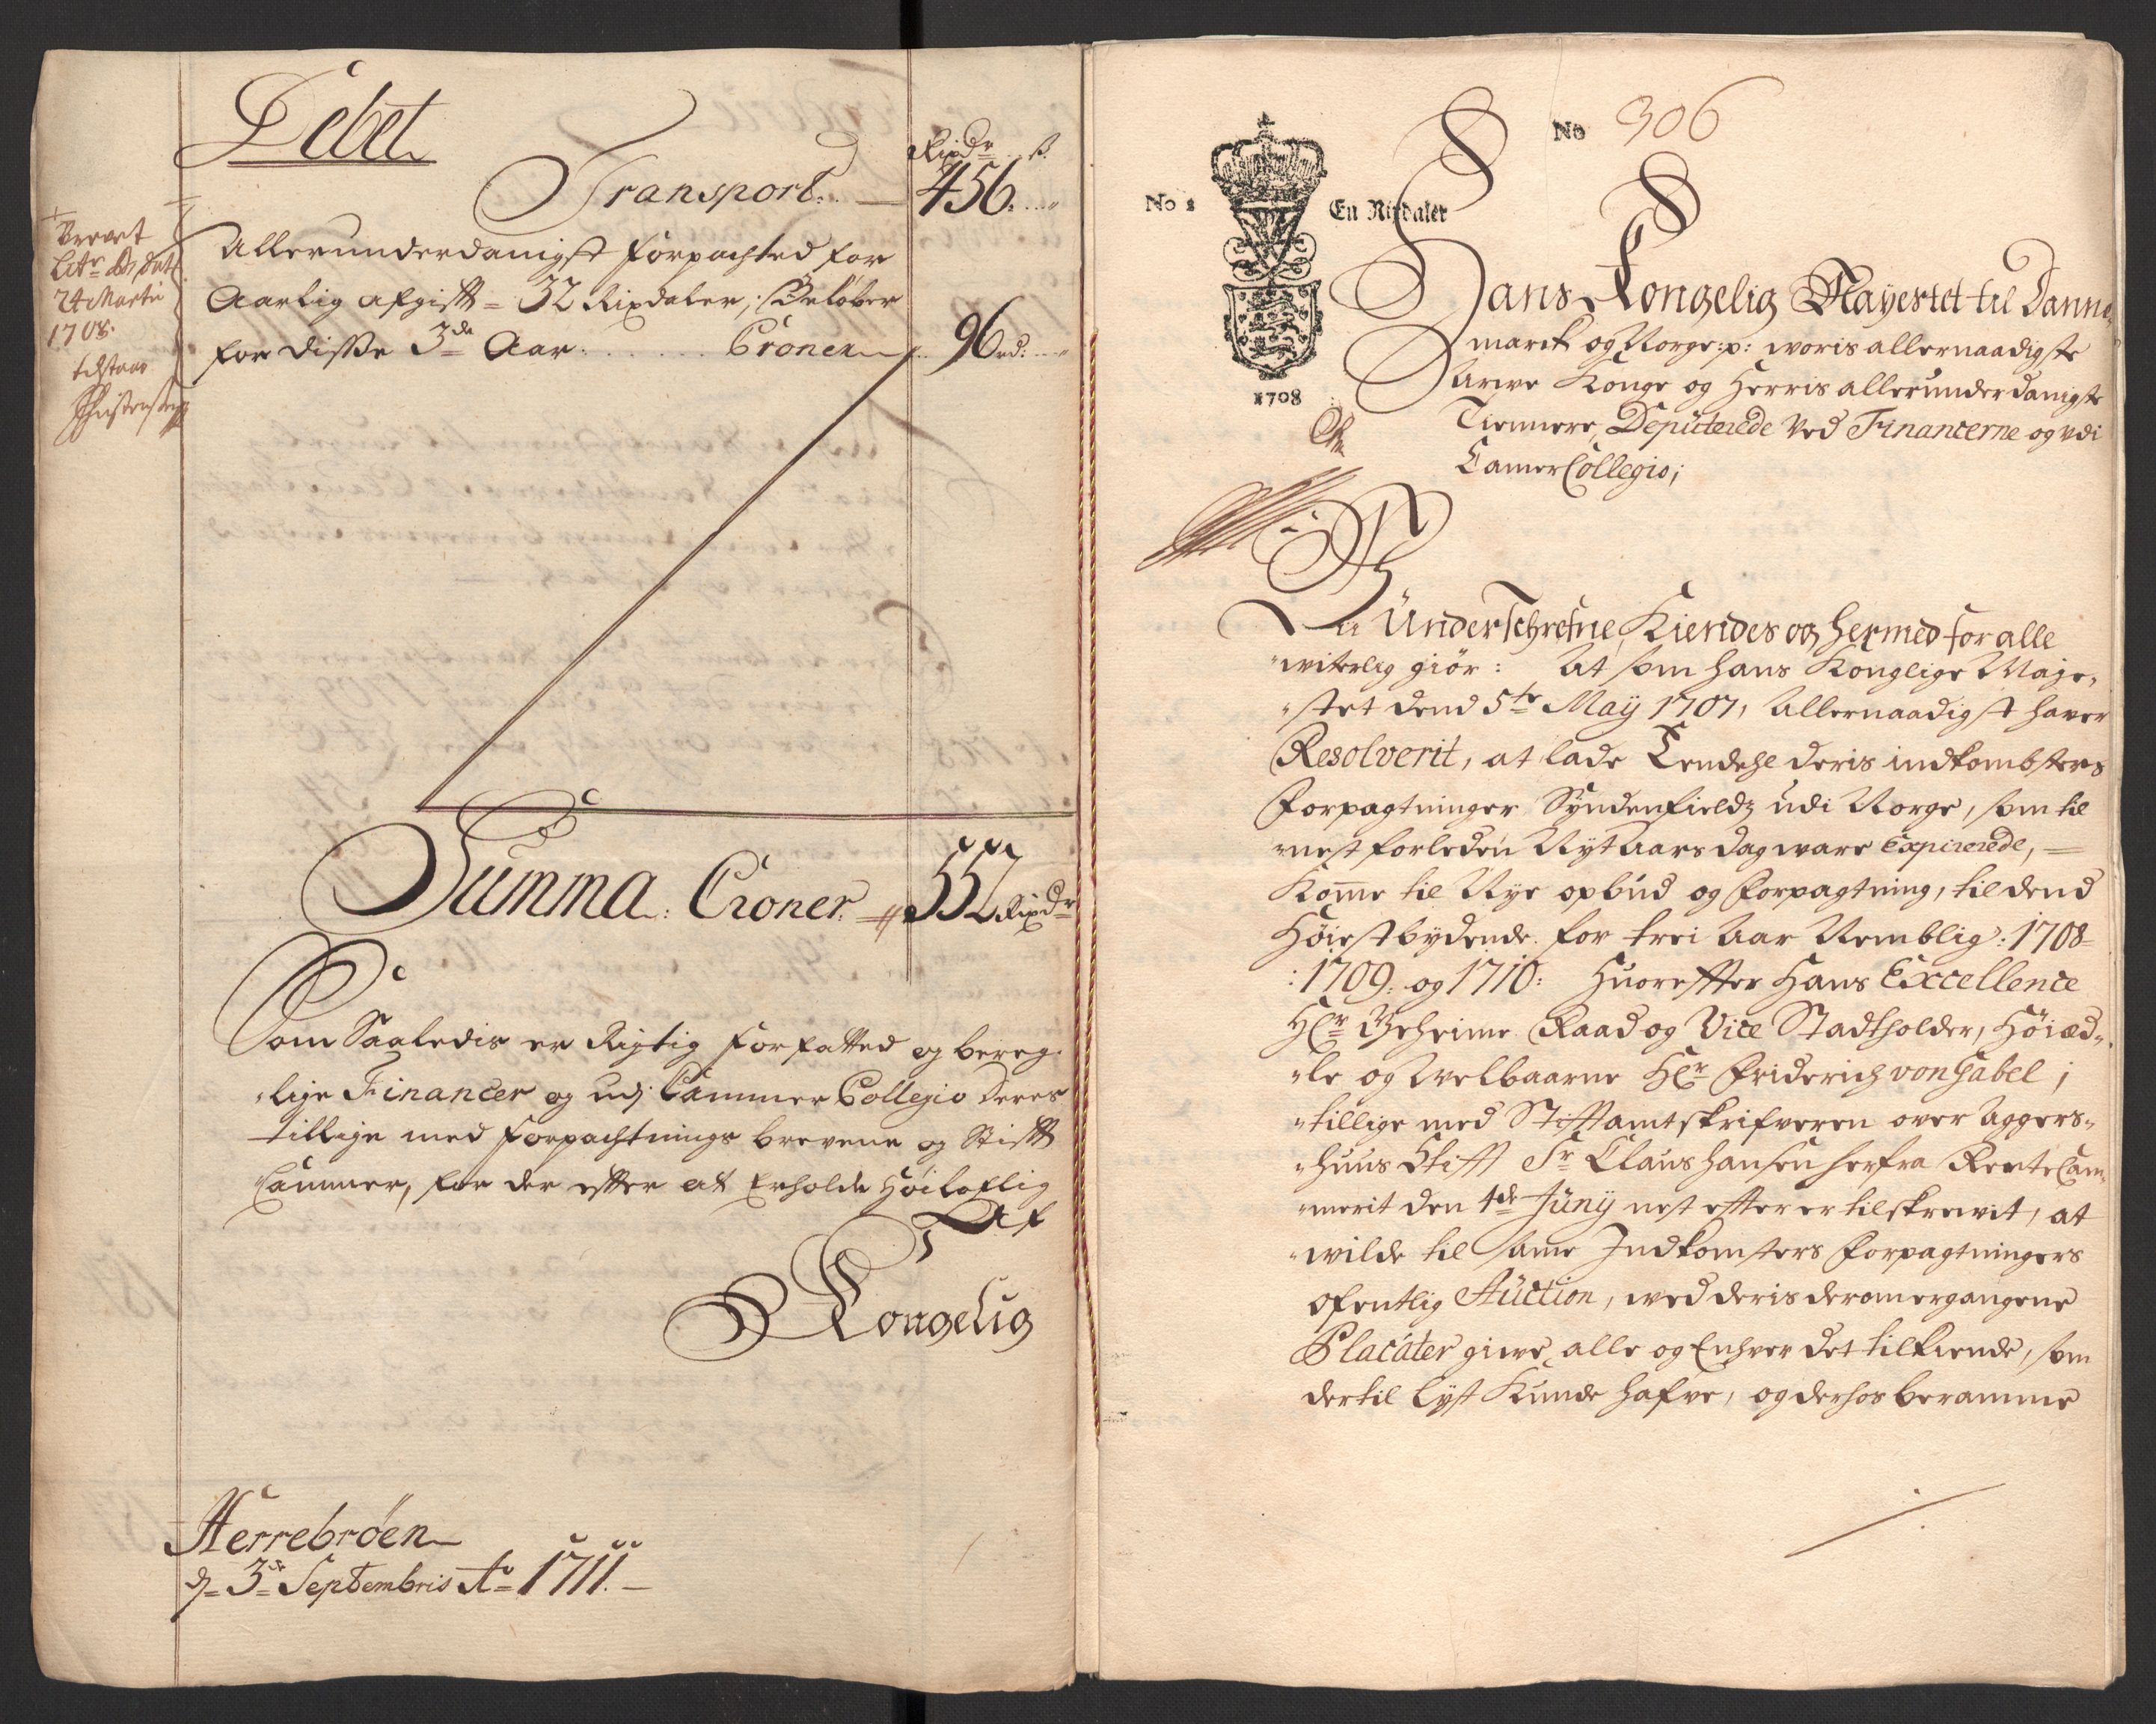 Debet
Rixdr ß.
Transport. 456. „
Brevet
Litr D, dat
24 Martii
1708.
Allerunderdanigst forpachted for
Aarlig afgifft = 32 Rixdaler, Beløber
for disse 3de Aar. . . . . . Croner 96 rd: „
Summa. Croner 552 Rixdr
Som Saaledis er Rigtig forfatted og bereg.
lige Financer og udj Cammer Collegio deres
tillige med forpachtnings brevene og Stifft
Cammer, for der effter at Erholde høiloflig
Af
Kongelig
Herrebröen
d. 3de Septembris Ao 1711.
No 306
No 1 En Rixdaler
1708
Hans Kongelig Mayestet til Danne,
marck og Norge :p: woris allernaadigste
Arwe Konge og Herris allerunderdanigste
Tiennere, Deputerede ved Financerne og udi
Camer Collegio;
Underschrefne, Kiendes og hermed for alle
witterlig giör: At som hans Konglige Maje,
„stet dend 5te Maij 1707, Allernaadigst haver
Resolverit, at lade Tendehl deris indkombsters
Forpagtninger Syndenfieldz udi Norge, som til
nest forleden Nyt Aars dag ware Expirerede,
Komme til Nye opbud og Forpagtning, til dend
Höiestbydende for trei Aar Nemblig: 1708
:1709: og 1710: Huoreffter Hans Excellence
Hr Geheime Raad og Vice Stadtholder, Höiæd„
„le og Welbaarne Hr Friderich von Gabel,
„tillige med Stifftamtskrifveren over Aggers„
„huus Stifft Sr Claus Hansen herfra Rente Cam„
„merit den 4de Junij nest effter er tilskrewit, at
wilde til samme Indkomsters Forpagtningers
Ofentlig Auction, wed deris derom ergangene
Placater giwe alle og Enhver det tilkiende, som
dertil lyst Kunde hafve, og derhos beramme